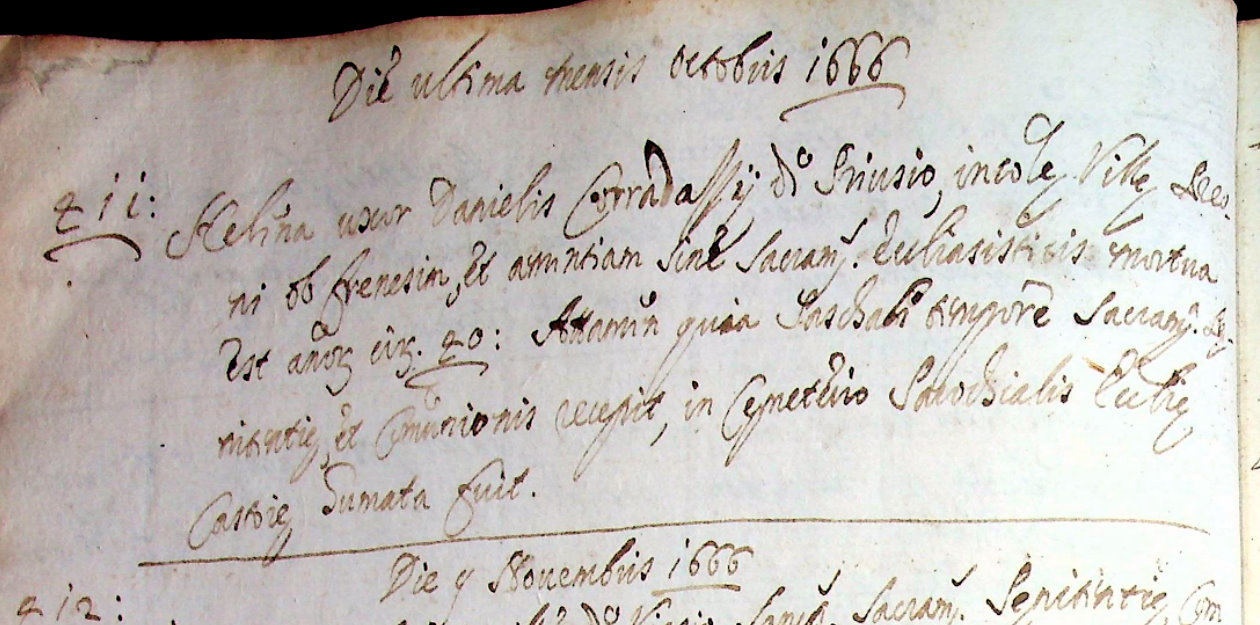 Die ultima mensis octobris 1666
411: Helena uxor Danielis Corradassÿ de Priusio, incolę Villę
ni ob frenesim, et amentiam sine Sacram. Ecclesiasisticis mortua
est añoꝝ cirꝰ. 40: Attamen quia Paschali tempore Sacramᵗ. Pę-
nitentię, et Comunionis recepit, in Cymeterio Parochialis Ecclię
Castrię humata fuit.
Die 9 Novembris 1666
412: Sacram. Penitentię, Com